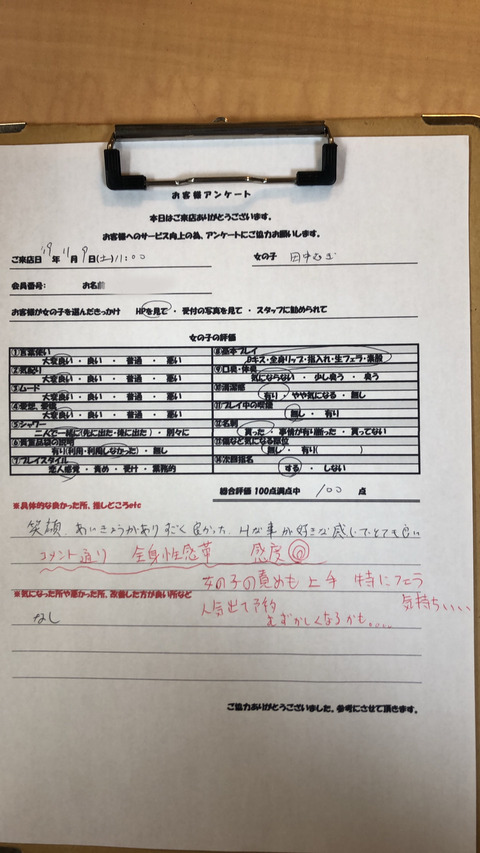 お客様アンケート
本日はご来店ありがとうございます。
お客様へのサービス向上の為、アンケートにご協力お願いします。
ご来店日 '19 年 11 月 9 日(土) 11:00 女の子 田中むぎ
会員番号: お名前
お客様が女の子を選んだきっかけ HPを見て ・ 受付の写真を見て ・ スタッフに勧められて
女の子の評価
①言葉使い
大変良い ・ 良い ・ 普通 ・ 悪い
②気配り
大変良い ・ 良い ・ 普通 ・ 悪い
③ムード
大変良い ・ 良い ・ 普通 ・ 悪い
④愛想、愛嬌
大変良い ・ 良い ・ 普通 ・ 悪い
⑤シャワー
二人で一緒に(先に出た・後に出た) ・ 別々に
⑥貴重品袋の説明
有り(利用・利用しなかった) ・ 無し
⑦プレイスタイル
恋人感覚 ・ 責め ・ 受け ・ 業務的
⑧基本プレイ
Dキス・全身リップ・指入れ・生フェラ・素股
⑨口臭・体臭
気にならない ・ 少し臭う ・ 臭う
⑩清潔感
有り ・ やや気になる ・ 無し
⑪プレイ中の喫煙
無し ・ 有り
⑫名刺
貰った ・ 事情が有り断った ・ 貰ってない
⑬傷など気になる部位
無し ・ 有り( )
⑭次回指名
する ・ しない
総合評価 100点満点中 100 点
※具体的な良かった所、推しどころetc
笑顔、あいきょうがありすごく良かった、Hな事が好きな感じでとても良い
コメント通り 全身性感革 感度◎
女の子の責めも上手 特にフェラ
気持ちいい、
※気になった所や悪かった所、改善した方が良い所など
人気出て予約
なし
むずかしくなるかも。。。。
ご協力ありがとうございました。参考にさせて頂きます。